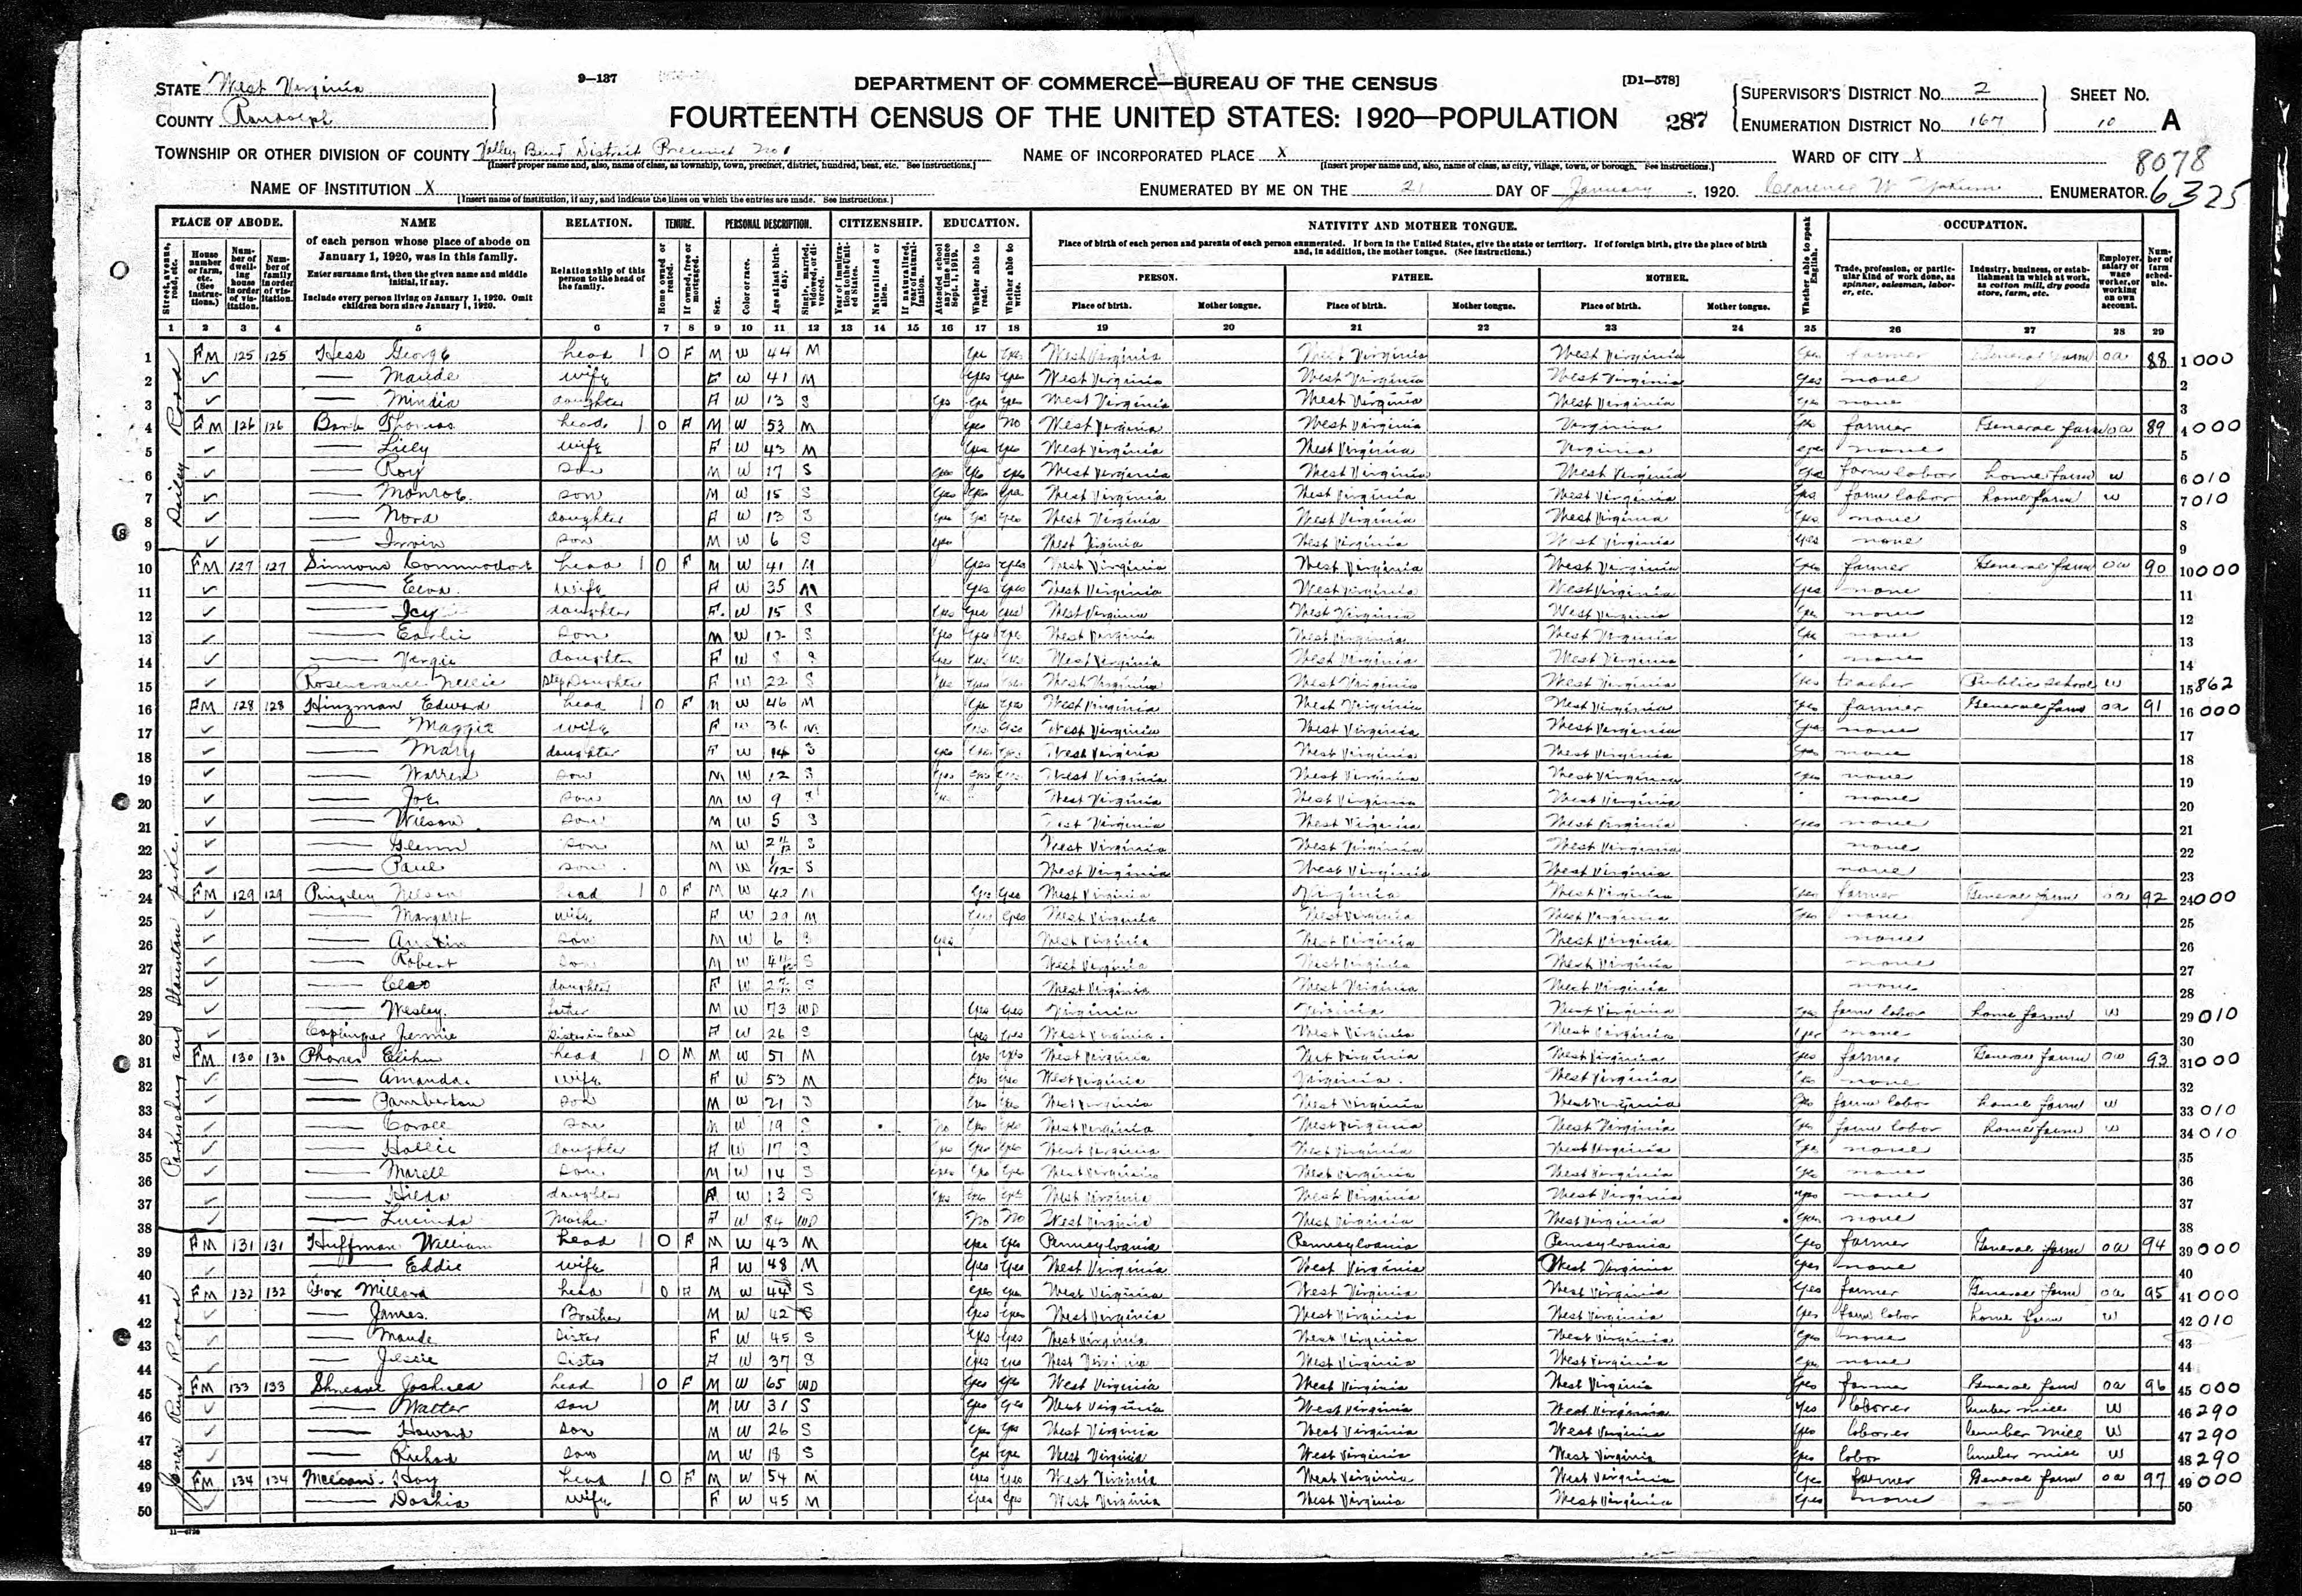 9—137
DEPARTMENT OF COMMERCE—BUREAU OF THE CENSUS
[D1—578]
STATE West Virginia
COUNTY Randolph
FOURTEENTH CENSUS OF THE UNITED STATES: 1920—POPULATION
287
SUPERVISOR'S DISTRICT No. 2
ENUMERATION DISTRICT No. 167
SHEET No.
10 A
TOWNSHIP OR OTHER DIVISION OF COUNTY Valley Bend District Precinct No 1
[Insert proper name and, also, name of class, as township, town, precinct, district, hundred, beat, etc. See instructions.]
NAME OF INCORPORATED PLACE X
[Insert proper name and, also, name of class, as city, village, town, or borough. See instructions.]
WARD OF CITY X
8078
NAME OF INSTITUTION X
[Insert name of institution, if any, and indicate the lines on which the entries are made. See instructions.]
ENUMERATED BY ME ON THE 21 DAY OF January, 1920. Clarence W Yokum ENUMERATOR.
6325
PLACE OF ABODE. NAME RELATION. TENURE. PERSONAL DESCRIPTION. CITIZENSHIP. EDUCATION. NATIVITY AND MOTHER TONGUE. OCCUPATION.
of each person whose place of abode on January 1, 1920, was in this family.
Enter surname first, then the given name and middle initial, if any.
Include every person living on January 1, 1920. Omit children born since January 1, 1920.
Relationship of this person to the head of the family.
Place of birth of each person and parents of each person enumerated. If born in the United States, give the state or territory. If of foreign birth, give the place of birth and, in addition, the mother tongue. (See instructions.)
PERSON. FATHER. MOTHER.
Place of birth. Mother tongue. Place of birth. Mother tongue. Place of birth. Mother tongue.
1 2 3 4 5 6 7 8 9 10 11 12 13 14 15 16 17 18 19 20 21 22 23 24 25 26 27 28 29
Dailey Road
1 FM 125 125 Hess George head 1 O F M W 44 M yes yes West Virginia West Virginia West Virginia yes farmer General farm oa 88 1 000
2 — Maude wife F W 41 M yes yes West Virginia West Virginia West Virginia yes none 2
3 — daughter F W 13 S yes yes yes West Virginia West Virginia West Virginia yes none 3
4 FM 126 126 Barb Thomas head 1 O F M W 53 M yes no West Virginia West Virginia Virginia yes farmer General farm oa 89 4 000
5 — Lilly wife F W 43 M yes yes West Virginia West Virginia Virginia yes none 5
6 — Roy son M W 17 S yes yes yes West Virginia West Virginia West Virginia yes farm labor home farm w 6 010
7 — Monroe son M W 15 S yes yes yes West Virginia West Virginia West Virginia yes farm labor home farm w 7 010
8 — Nora daughter F W 13 S yes yes yes West Virginia West Virginia West Virginia yes none 8
9 — Irvin son M W 6 S yes West Virginia West Virginia West Virginia yes none 9
Parkersburg and Staunton pike.
10 FM 127 127 Simmons Commodore head 1 O F M W 41 M yes yes West Virginia West Virginia West Virginia yes farmer General farm oa 90 10 000
11 — wife F W 35 M yes yes West Virginia West Virginia West Virginia yes none 11
12 — Icy daughter F W 15 S yes yes yes West Virginia West Virginia West Virginia yes none 12
13 — Earlie son M W 12 S yes yes yes West Virginia West Virginia West Virginia yes none 13
14 — Vergie daughter F W 8 S yes yes yes West Virginia West Virginia West Virginia none 14
15 Rosencrance Nellie Step Daughter F W 22 S yes yes yes West Virginia West Virginia West Virginia yes teacher Public School w 15 862
16 FM 128 128 Hinzman Edward head 1 O F M W 46 M yes yes West Virginia West Virginia West Virginia yes farmer General farm oa 91 16 000
17 — Maggie wife F W 36 M yes yes West Virginia West Virginia West Virginia yes none 17
18 — Mary daughter F W 14 S yes yes yes West Virginia West Virginia West Virginia yes none 18
19 — Warren son M W 12 S yes yes yes West Virginia West Virginia West Virginia yes none 19
20 — Joe son M W 9 S yes West Virginia West Virginia West Virginia none 20
21 — Wilson son M W 5 S West Virginia West Virginia West Virginia yes none 21
22 — Glenn son M W S West Virginia West Virginia West Virginia none 22
23 — Paul son M W 1/12 S West Virginia West Virginia West Virginia none 23
24 FM 129 129 Pingley Nelson head 1 O F M W 42 M yes yes West Virginia Virginia West Virginia yes farmer General farm oa 92 24 000
25 — Margaret wife F W 29 M yes yes West Virginia West Virginia West Virginia yes none 25
26 — Austin son M W 6 S yes West Virginia West Virginia West Virginia none 26
27 — Robert son M W S West Virginia West Virginia West Virginia none 27
28 — Cleo daughter F W S West Virginia West Virginia West Virginia none 28
29 — Wesley father M W 73 WD yes yes Virginia Virginia West Virginia yes farm labor home farm w 29 010
30 Coplinger Jennie Sister in law F W 26 S yes yes West Virginia West Virginia West Virginia yes none 30
31 FM 130 130 Phares Elihu head 1 O M M W 57 M yes yes West Virginia West Virginia West Virginia yes farmer General farm oa 93 31 000
32 — Amanda wife F W 53 M yes yes West Virginia Virginia West Virginia yes none 32
33 — Pamberton son M W 21 S yes yes West Virginia West Virginia West Virginia yes farm labor home farm w 33 010
34 — son M W 19 S no yes yes West Virginia West Virginia West Virginia yes farm labor home farm w 34 010
35 — Hallie daughter F W 17 S yes yes yes West Virginia West Virginia West Virginia yes none 35
36 — son M W 14 S yes yes yes West Virginia West Virginia West Virginia yes none 36
37 — Hilda daughter F W 13 S yes yes yes West Virginia West Virginia West Virginia yes none 37
38 — Lucinda Mother F W 84 WD no no West Virginia West Virginia West Virginia yes none 38
Jones Run Road
39 FM 131 131 Huffman William head 1 O F M W 43 M yes yes Pennsylvania Pennsylvania Pennsylvania yes farmer General farm oa 94 39 000
40 — Eddie wife F W 48 M yes yes West Virginia West Virginia West Virginia yes none 40
41 FM 132 132 Fox Millard head 1 O F M W 44 S yes yes West Virginia West Virginia West Virginia yes farmer General farm oa 95 41 000
42 — James Brother M W 42 S yes yes West Virginia West Virginia West Virginia yes farm labor home farm w 42 010
43 — Maude Sister F W 45 S yes yes West Virginia West Virginia West Virginia yes none 43
44 — Jessie Sister F W 37 S yes yes West Virginia West Virginia West Virginia yes none 44
45 FM 133 133 Joshua head 1 O F M W 65 WD yes yes West Virginia West Virginia West Virginia yes farmer General farm oa 96 45 000
46 — Walter son M W 31 S yes yes West Virginia West Virginia West Virginia yes laborer lumber mill w 46 290
47 — Howard son M W 26 S yes yes West Virginia West Virginia West Virginia yes laborer lumber mill w 47 290
48 — Richard son M W 18 S yes yes West Virginia West Virginia West Virginia yes labor lumber mill w 48 290
49 FM 134 134 Hoy head 1 O F M W 54 M yes yes West Virginia West Virginia West Virginia yes farmer General farm oa 97 49 000
50 — Dashia wife F W 45 M yes yes West Virginia West Virginia West Virginia yes none 50